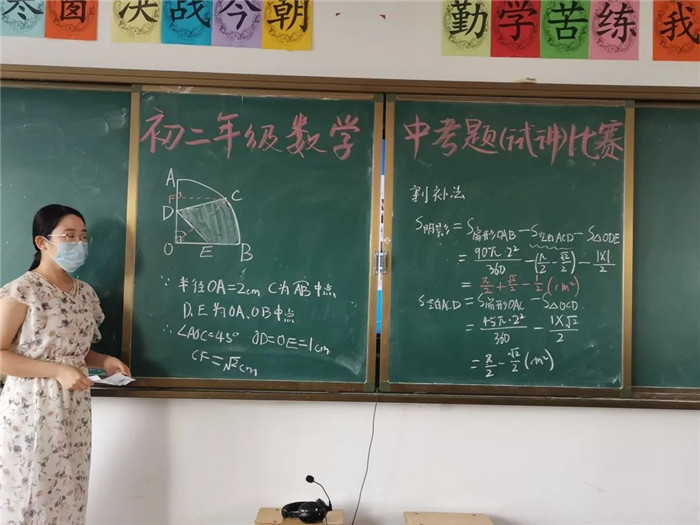 寒窗 决战今朝 勤学苦练 我
初二年级数学
中考题(试讲)比赛
A
F
C
D
O E B
∵ 半径OA=2cm C为AB中点
D、E为OA、OB中点
∴ ∠AOC=45° OD=OE=1cm
CF=√2cm
割补法
S阴影=S扇形OAB-S空白ACD-S△ODE
=90π·2²/360-(π/2-√2/2)-1×1/2
=π/2+√2/2-1/2(cm²)
S空白ACD=S扇形OAC-S△OCD
=45π·2²/360-1×√2/2
=π/2-√2/2(cm²)